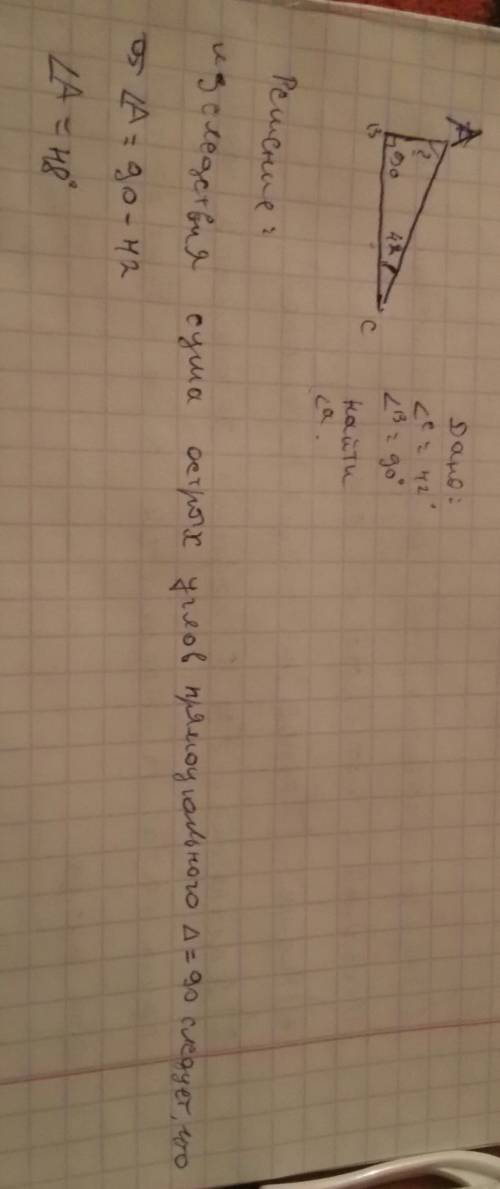 A
?
B
90
42
C
Дано:
∠C = 42°
∠B = 90°
Найти
∠a.
Решение:
из следствия сума острых углов прямоугольного Δ = 90 следует, что
∠A = 90 - 42
∠A = 48°